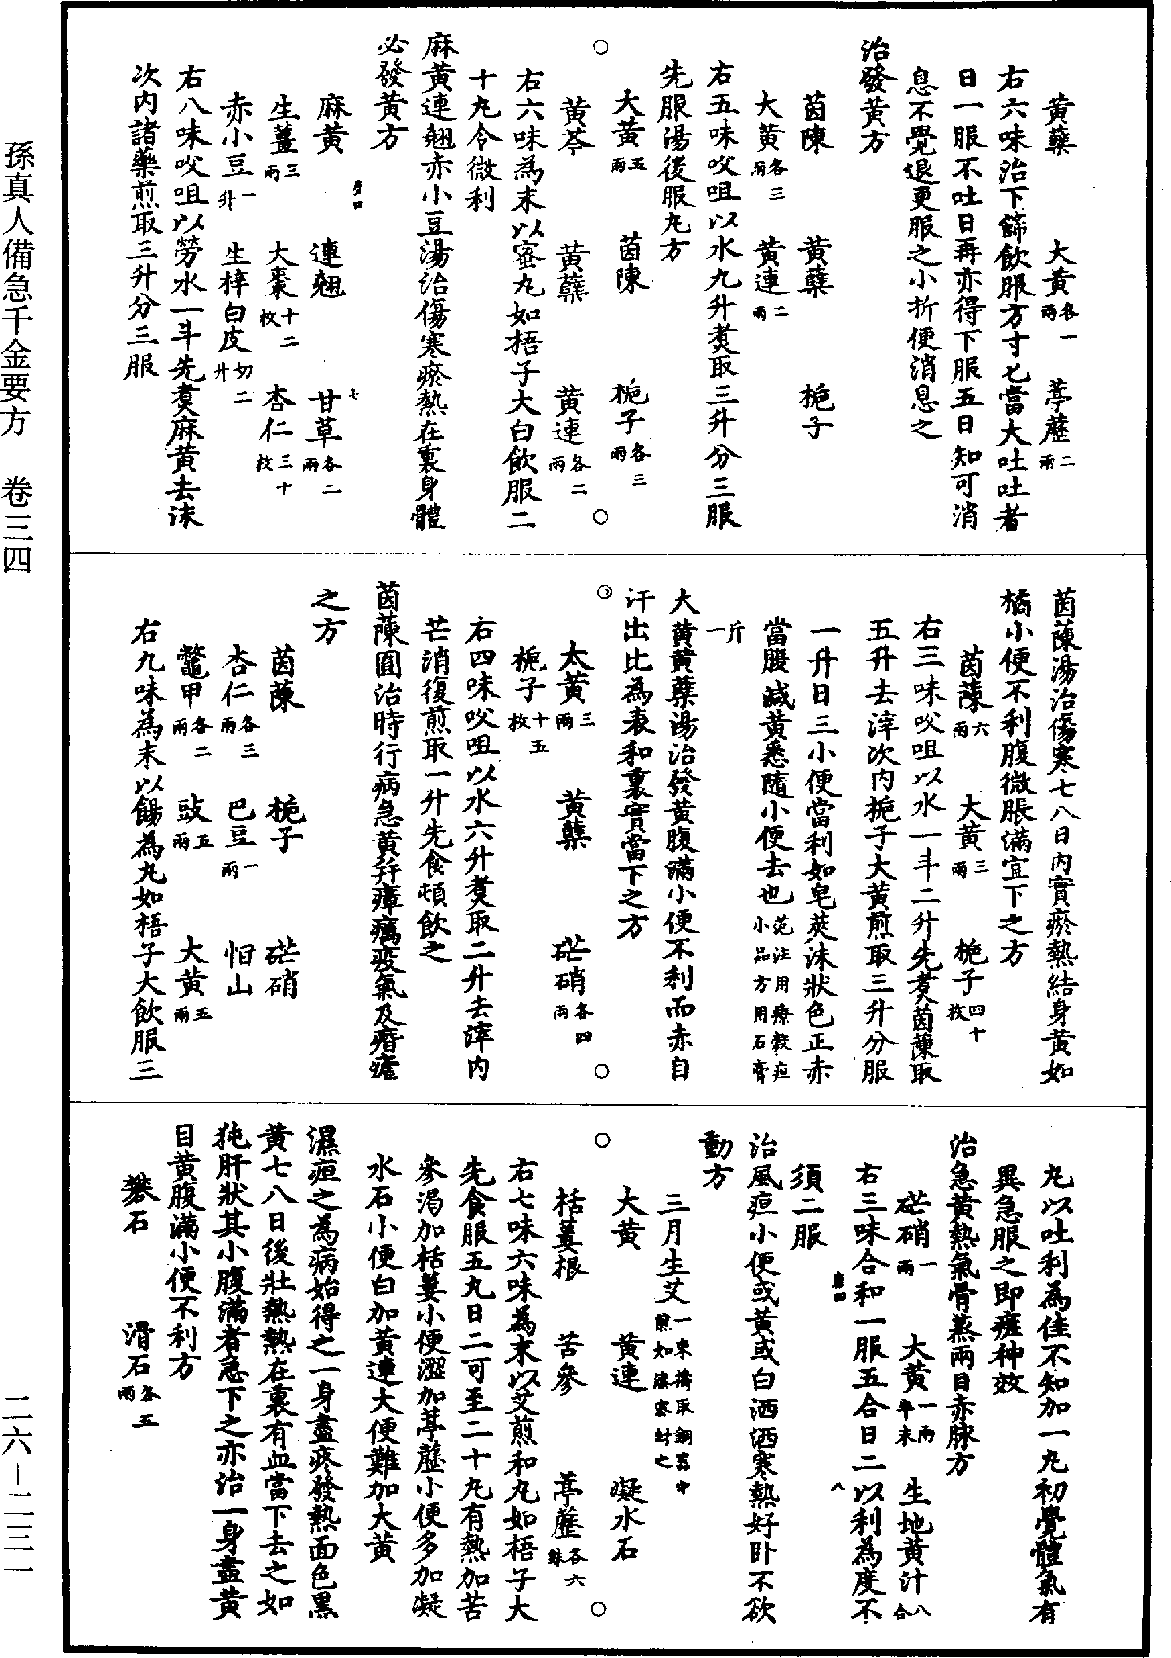 黃蘗　大黃各一兩　葶藶二兩
右六味治下篩飲服方寸匕當大吐吐者
日一服不吐日再亦得下服五日知可消
息不覺退更服之小折便消息之
治發黃方
茵陳　黃蘗　梔子
大黃各三兩　黃連二兩
右五味㕮咀以水九升煑取三升分三服
先服湯後服丸方
大黃五兩　茵陳　梔子各三兩
黃芩　黃蘗　黃連各二兩
右六味為末以蜜丸如梧子大白飲服二
十丸令微利
麻黃連翹赤小豆湯治傷寒瘀熱在裏身體
必發黃方
麻黃　連翹　甘草各二兩
生薑三兩　大棗十二枚　杏仁三十枚
赤小豆一升　生梓白皮切二升
右八味㕮咀以勞水一斗先煑麻黃去沫
次內諸藥煎取三升分三服
茵蔯湯治傷寒七八日內實瘀熱結身黃如
橘小便不利腹微脹滿宜下之方
茵蔯六兩　大黃三兩　梔子四十枚
右三味㕮咀以水一斗二升先煑茵蔯取
五升去滓次內梔子大黃煎取三升分服
一升日三小便當利如皂莢沫狀色正赤
當腹減黃悉隨小便去也范汪用療穀疸小品方用石膏
一斤
大黃黃蘗湯治發黃腹滿小便不利而赤自
汗出比為表和裏實當下之方
大黃三兩　黃蘗　芒硝各四兩
梔子十五枚
右四味㕮咀以水六升煑取二升去滓內
芒消復煎取一升先食頓飲之
茵蔯圓治時行病急黃幷瘴癘疫氣及痟瘧
之方
茵蔯　梔子　芒硝
杏仁各三兩　巴豆一兩　恒山
鼈甲各二兩　豉五兩　大黃五兩
右九味為末以餳為丸如梧子大飲服三
丸以吐利為佳不知加一丸初覺體氣有
異急服之即瘥神效
治急黃熱氣骨蒸兩目赤脉方
芒硝一兩　大黃一兩半末　生地黃汁八合
右三味合和一服五合日二以利為度不
須二服
治風疸小便或黃或白洒洒寒熱好卧不欲
動方
三月生艾一束擣取銅器中煎如漆密封之
大黃　黃連　凝水石
栝蔞根　苦參　葶藶各六銖
右七味六味為末以艾煎和丸如梧子大
先食服五丸日二可至二十丸有熱加苦
參渴加栝蔞小便澀加葶藶小便多加凝
水石小便白加黃連大便難加大黃
濕疸之為病始得之一身盡疼發熱面色黑
黃七八日後壯熱熱在裏有血當下去之如
㹠肝狀其小腹滿者急下之亦治一身盡黃
目黃腹滿小便不利方
礬石　滑石各五兩
孫真人備急千金要方　卷三四
二六－二三一